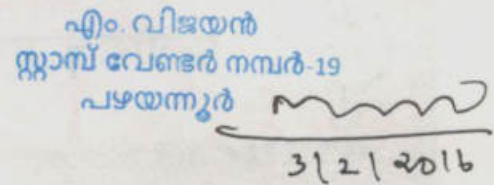 എം. വിജയൻ
സ്റ്റാമ്പ് വേണ്ടർ നമ്പർ-19
പഴയന്നൂർ
3/2/2016